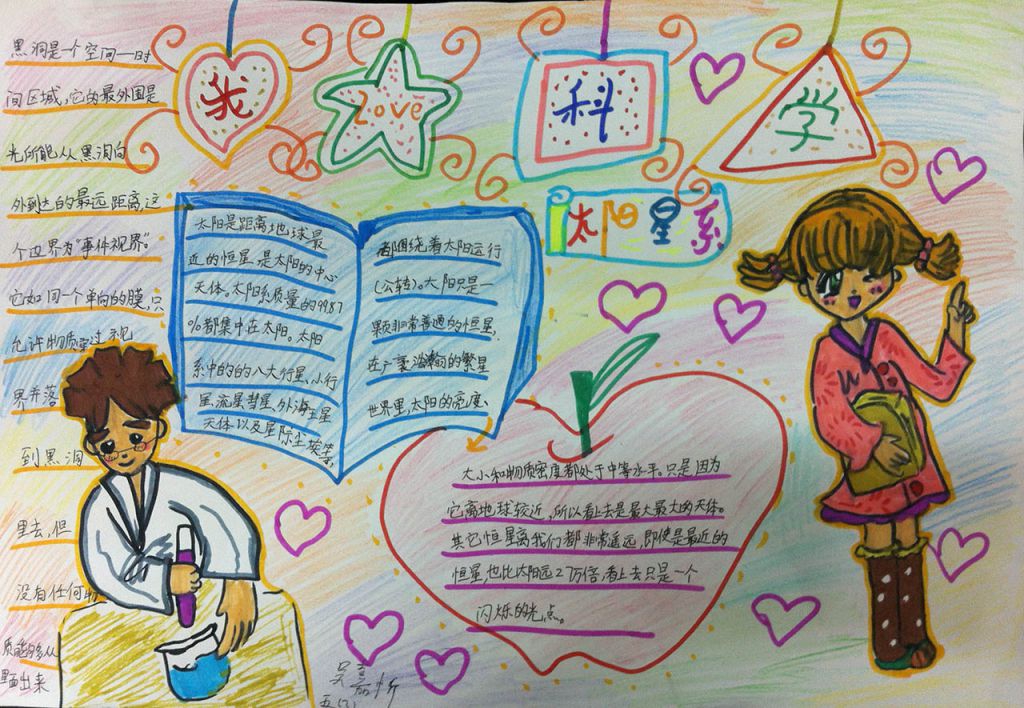 我 Love 科 学
太阳星系
黑洞是一个空间一时
间区域,它的最外围是
光所能从黑洞向
外到达的最远距离,这
个边界为“事件视界”。
它如同一个单向的膜,只
允许物质穿过视
界并落
到黑洞
里去,但
没有任何物
质能够从
里面出来
太阳是距离地球最
近的恒星,是太阳的中心
天体。太阳系质量的99.87
%都集中在太阳。太阳
系中的的八大行星、小行
星、流星、彗星、外海王星
天体以及星际尘埃等,
都围绕着太阳运行
(公转)。太阳只是一
颗非常普通的恒星,
在广袤浩瀚的繁星
世界里,太阳的亮度、
大小和物质密度都处于中等水平。只是因为
它离地球较近,所以看上去是最大最大的天体。
其它恒星离我们都非常遥远,即使是最近的
恒星,也比太阳远27万倍,看上去只是一个
闪烁的光点。
五(2)